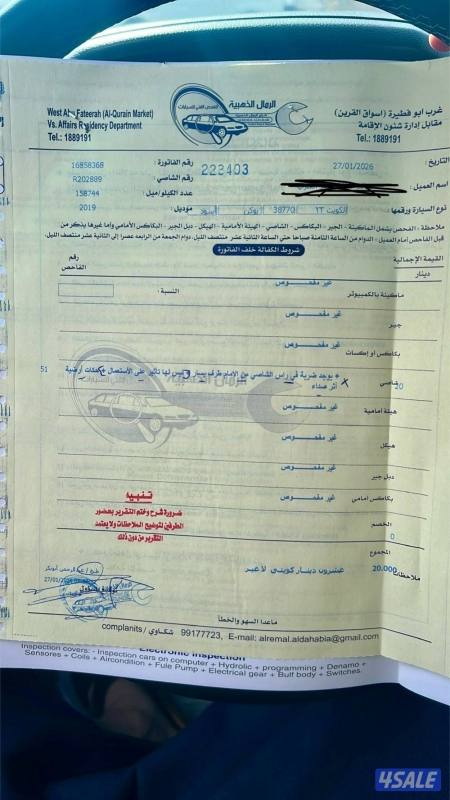 West Abu Fateerah (Al-Qurain Market)
Vs. Affairs Residency Department
Tel.: 1889191
الرمال الذهبية
الفحص الفني للسيارات
غرب ابو فطيرة (اسواق القرين)
مقابل إدارة شئون الإقامة
Tel.: 1889191
التاريخ : 27/01/2026
223403
رقم الفاتورة : 16858368
اسم العميل :
رقم الشاصي : R202889
عدد الكيلو/ميل : 158744
نوع السيارة ورقمها : الكويت ٢٣ 38770 يوكن اسود
موديل : 2019
ملاحظة : الفحص يشمل الماكينة - الجير - البكاكس - الشاصي - الهيئة الأمامية - الهيكل - دبل الجير - البكاكس الأمامي وما غيرها يذكر من
قبل الفحص أمام العميل - الدوام من الساعة الثامنة صباحا حتى الساعة الثانية عشر منتصف الليل. دوام الجمعة من الرابعة عصرا إلى الثانية عشر منتصف الليل.
شروط الكفالة خلف الفاتورة
القيمة الإجمالية
دينار
رقم
الفاحص
ماكينة بالكمبيوتر غير مفحوص النسبة :
جير غير مفحوص
بكاكس أو إكسات غير مفحوص
شاصي 20
* يوجد ضربة في راس الشاصي من الامام طرف يسار و ليس لها تأثير على الاستعمال
أرضية 51
أثر صداء
هيئة امامية غير مفحوص
هيكل غير مفحوص
دبل جير غير مفحوص
بكاكس امامي غير مفحوص
تنبيه
ضرورة شرح وختم التقرير بحضور
الطرفين لتوضيح الملاحظات ولا يعتمد
التقرير من دون ذلك
الخصم
0
المجموع
20.000 ملاحظات عشرون دينار كويتي لا غير
27/01/2026
ماعدا السهو والخطأ
complanits / شكاوي 99177723, E-mail: alremal.aldahabia@gmail.com
Electronic Inspection
Inspection covers: - Inspection cars on computer + Hydrolic + programming + Denamo +
Sensores + Coils + Aircondition + Fule Pump + Electrical gear + Bulf body + Switches.
4SALE